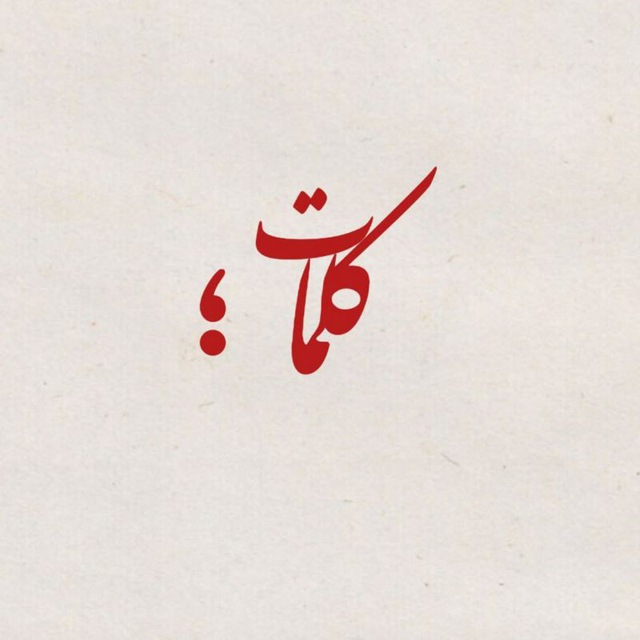 كلمات ؛